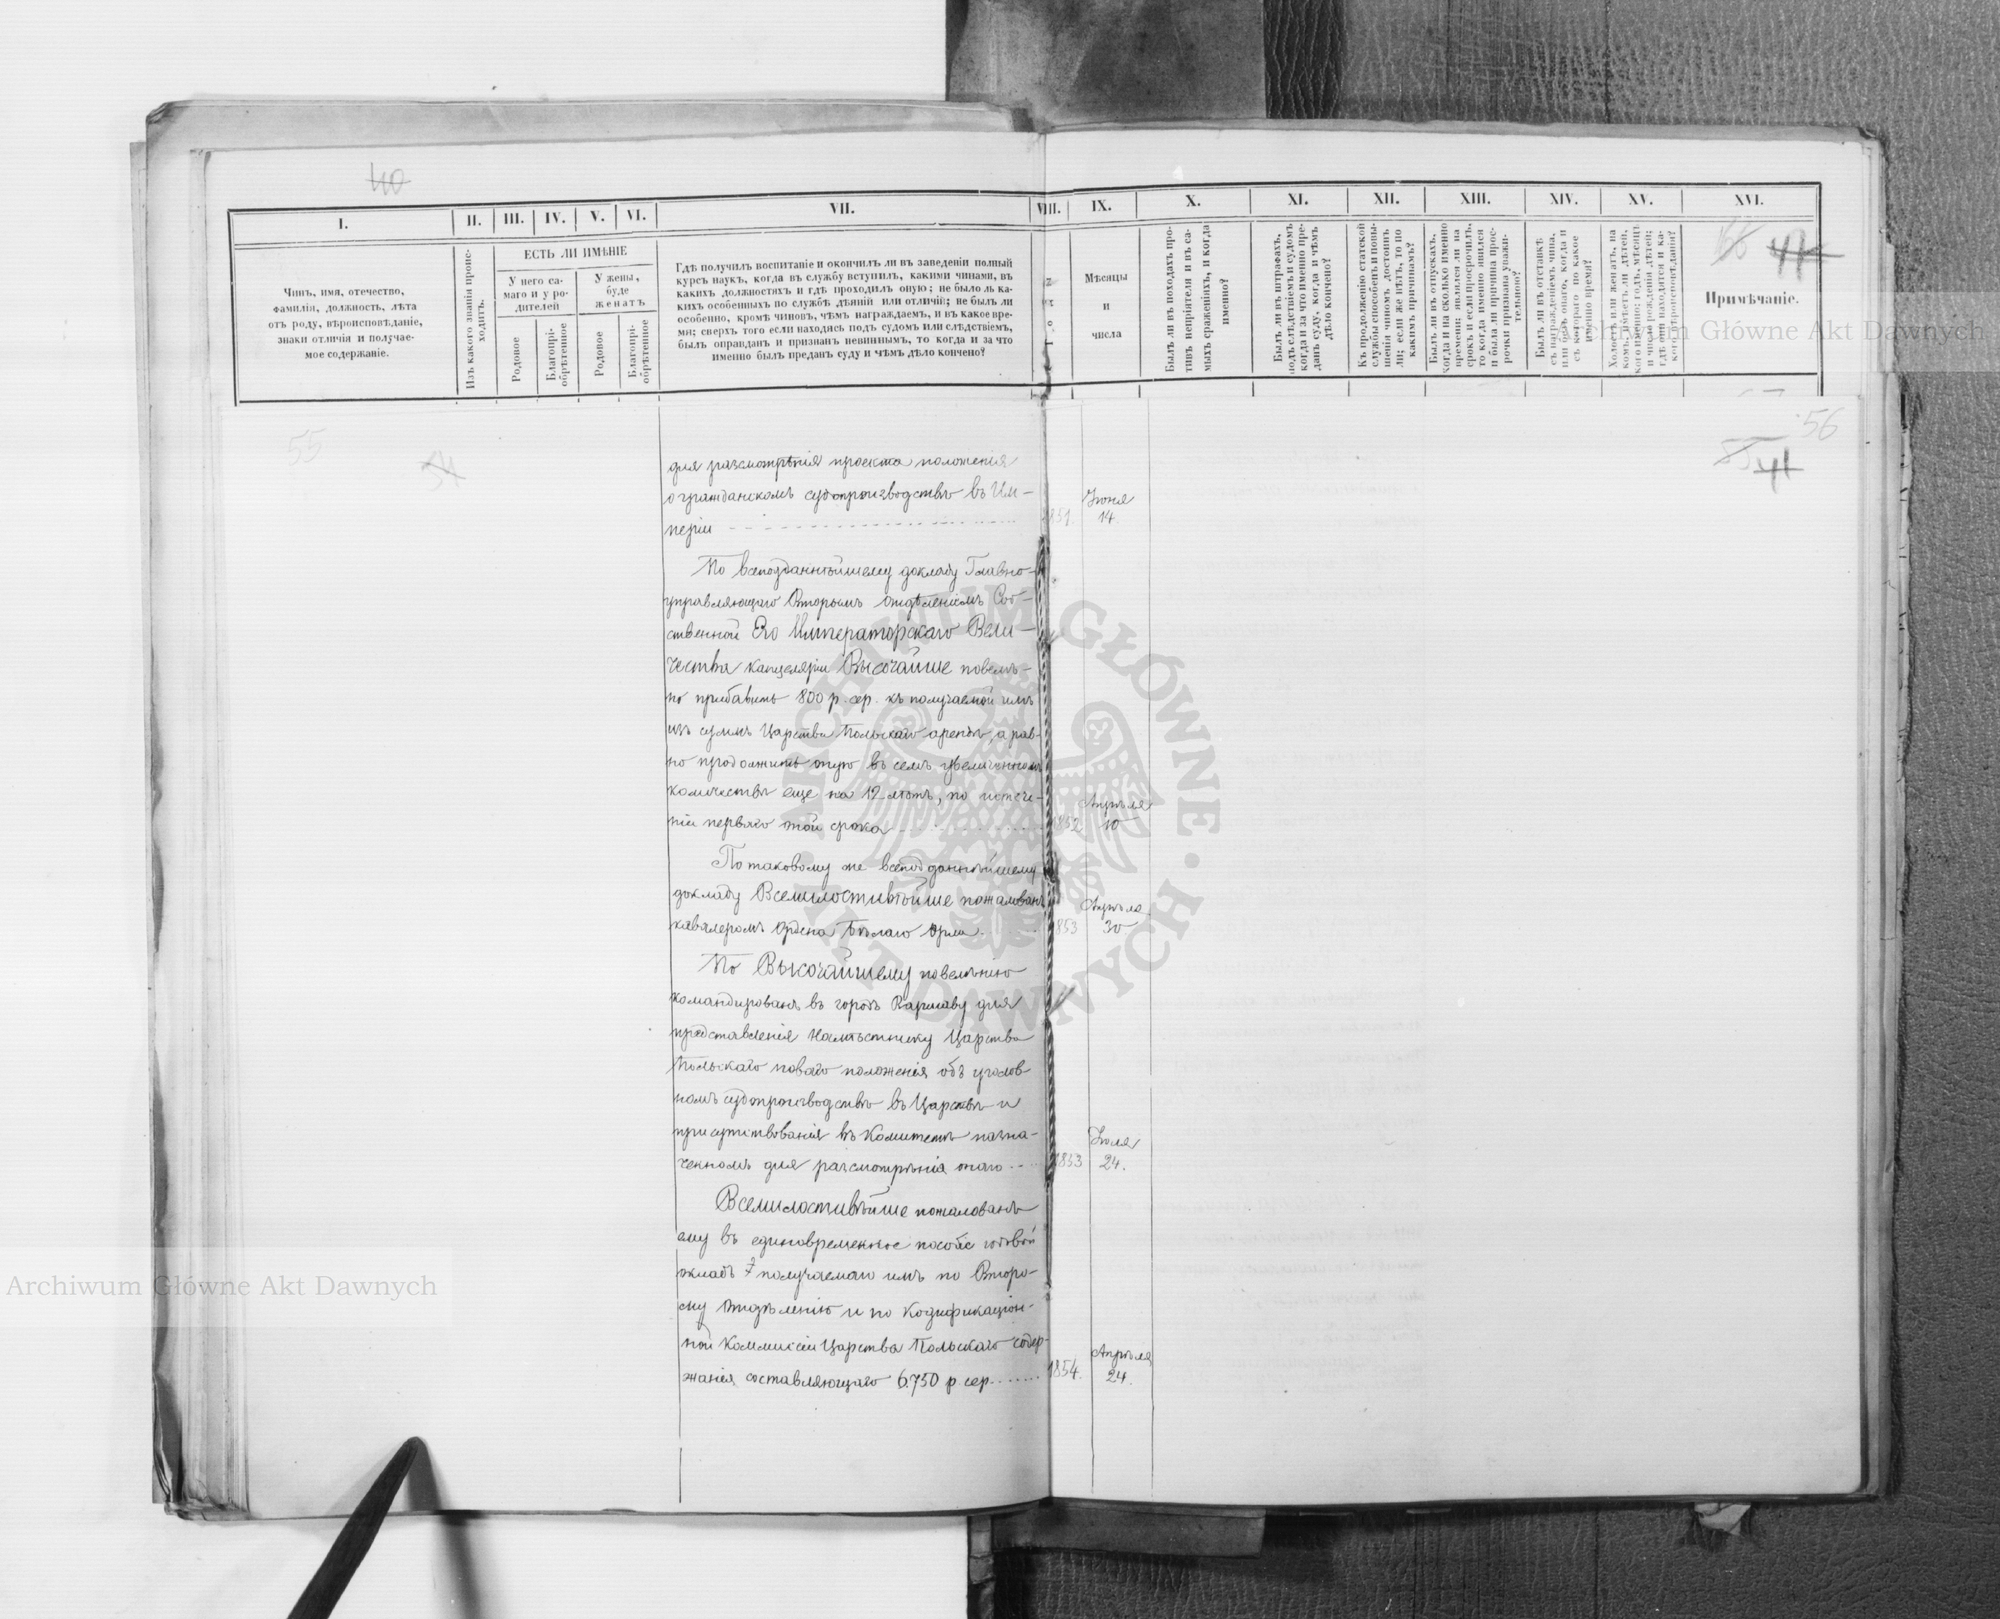 40
I.
II.
III.
IV.
V.
VI.
VII.
VIII.
IX.
X.
XI.
XII.
XIII.
XIV.
XV.
XVI.
Чинъ, имя, отечество,
фамилія, должность, лѣта
отъ роду, вѣроисповѣданіе,
знаки отличія и получае-
мое содержаніе.
Изъ какого званія проис-
ходитъ.
ЕСТЬ ЛИ ИМѢНІЕ
У него са-
маго и у ро-
дителей
У жены,
буде
женатъ
Родовое
Благопрі-
обрѣтенное
Родовое
Благопрі-
обрѣтенное
Гдѣ получилъ воспитаніе и окончилъ ли въ заведеніи полный
курсъ наукъ, когда въ службу вступилъ, какими чинами, въ
какихъ должностяхъ и гдѣ проходилъ оную; не было ль ка-
кихъ особенныхъ по службѣ дѣяній или отличій; не былъ ли
особенно, кромѣ чиновъ, чѣмъ награждаемъ, и въ какое вре-
мя; сверхъ того если находясь подъ судомъ или слѣдствіемъ,
былъ оправданъ и признанъ невиннымъ, то когда и за что
именно былъ преданъ суду и чѣмъ дѣло кончено?
Мѣсяцы
и
числа
Былъ ли въ походахъ про-
тивъ непріятеля и въ са-
мыхъ сраженіяхъ, и когда
именно?
Былъ ли въ штрафахъ,
подъ слѣдствіемъ и судомъ
когда и за что именно пре-
данъ суду, когда и чѣмъ
дѣло кончено?
Къ продолженію статской
службы способенъ и повы-
шенія чиномъ достоинъ
ли; если же нѣтъ, то по
какимъ причинамъ?
Былъ ли въ отпускахъ,
когда и на сколько именно
времени; являлся ли на
срокъ и если просрочилъ,
то когда именно явился
и была ли причина прос-
рочки признана уважи-
тельною?
Былъ ли въ отставкѣ
съ награжденіемъ чина,
или безъ онаго, когда и
съ котораго по какое
именно время?
Холостъ или женатъ, на
комъ, имѣетъ ли дѣтей,
кого именно; годъ, мѣсяцъ
и число рожденія дѣтей;
гдѣ они находятся и ка-
кого вѣроисповѣданія?
Примѣчаніе.
55
54
56
для разсмотрѣнія проекта положенія
о гражданскомъ судопроизводствѣ въ Им-
періи
1851. Іюня 14.
По всеподданнѣйшему докладу Главно-
управляющаго Вторымъ Отдѣленіемъ Соб-
ственной Его Императорскаго Вели-
чества Канцеляріи Высочайше повелѣ-
но прибавить 800 р. сер. къ получаемой имъ
изъ суммъ Царства Польскаго арендѣ, а рав-
но продолжить оную въ семъ увеличенномъ
количествѣ еще на 12 лѣтъ, по истече-
ніи перваго той срока
1852 Апрѣля 10
По таковому же всеподданнѣйшему
докладу Всемилостивѣйше пожалованъ
кавалеромъ Ордена Бѣлаго Орла
1853 Апрѣля 30
По Высочайшему повелѣнію
командированъ въ городъ Варшаву для
представленія Намѣстнику Царства
Польскаго новаго положенія объ уголов
номъ судопроизводствѣ въ Царствѣ и
присутствованія въ Комитетѣ назна-
ченномъ для разсмотрѣнія онаго
1853 Іюля 24.
Всемилостивѣйше пожалованъ
ему въ единовременное пособіе годовой
окладъ получаемаго имъ по Второ-
му Отдѣленію и по Кодификаціон-
ной Коммисіи Царства Польскаго содер-
жанія составляющаго 6.750 р. сер.
1854. Апрѣля 24.
Archiwum Główne Akt Dawnych
Archiwum Główne Akt Dawnych
ARCHIWUM GŁÓWNE
AKT DAWNYCH